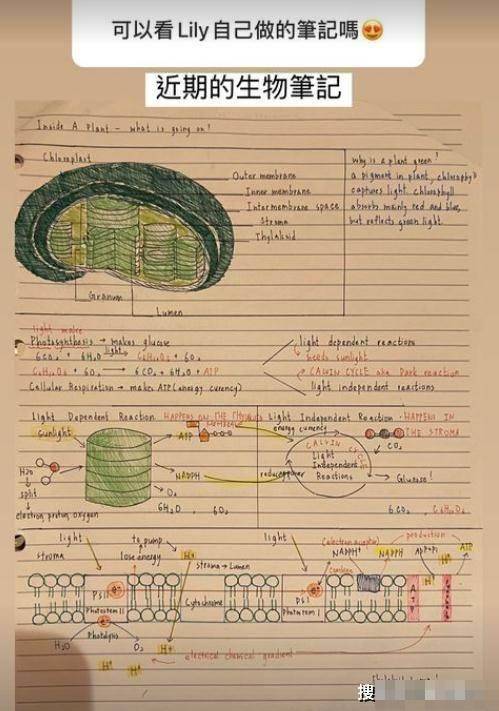 可以看 Lily 自己做的筆記嗎😍
近期的生物筆記
Inside A Plant – what is going on!
Chloroplast
Outer membrane
Inner membrane
Intermembrane space
Stroma
Thylakoid
Granum
Lumen
why is a plant green?
a pigment in plant, chlorophyll
captures light. Chlorophyll
absorbs mainly red and blue,
but reflects green light.
light
Photosynthesis → makes glucose
6CO₂ + 6H₂O light → C₆H₁₂O₆ + 6O₂
C₆H₁₂O₆ + 6O₂ → 6CO₂ + 6H₂O + ATP
Cellular Respiration → makes ATP (energy curency)
light dependent reactions
needs sunlight
CALVIN CYCLE aka Dark reaction
light independent reactions
Light Dependent Reaction HAPPENS ON THE
Sunlight
H₂O
split
electron, proton, oxygen
ATP
NADPH
O₂
6H₂O, 6O₂
Light Independent Reaction · HAPPENS IN
THE STROMA
energy currency
reduce power
CALVIN CYCLE
Light
Independent
Reactions
CO₂
Glucose!
6CO₂, C₆H₁₂O₆
light
stroma
to pump
lose energy
H+
stroma → Lumen
light
(electron aceptor)
NADPH
NADP+
production
ADP+Pi
ATP
H+
PS II
Photostem II
e-
Cytochrome
PS I
Photostem I
e-
ATP
Photolysis
H₂O
O₂
H+
H+
H+
electrical chemical gradient
搜